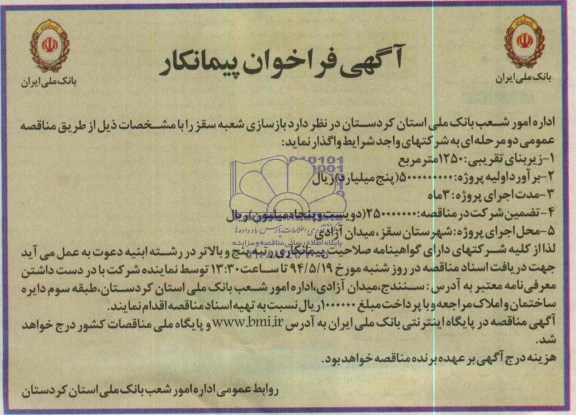 آگهی فراخوان پیمانکار
بانک ملی ایران
بانک ملی ایران
اداره امور شعب بانک ملی استان کردستان در نظر دارد بازسازی شعبه سقز را با مشخصات ذیل از طریق مناقصه
عمومی دو مرحله ای به شرکتهای واجد شرایط واگذار نماید:
۱-زیربنای تقریبی: ۱۲۵۰مترمربع
۲-برآورد اولیه پروژه: ۵۰۰۰۰۰۰۰۰۰(پنج میلیارد)ریال
۳-مدت اجرای پروژه: ۳ماه
۴-تضمین شرکت در مناقصه: ۲۵۰۰۰۰۰۰۰(دویست و پنجاه میلیون)ریال
۵-محل اجرای پروژه: شهرستان سقز، میدان آزادی
لذا از کلیه شرکتهای دارای گواهینامه صلاحیت پیمانکاری رتبه پنج و بالاتر در رشته ابنیه دعوت به عمل می آید
جهت دریافت اسناد مناقصه در روز شنبه مورخ ۹۴/۵/۱۹ تا ساعت ۱۳:۳۰ توسط نماینده شرکت با در دست داشتن
معرفی نامه معتبر به آدرس: سنندج، میدان آزادی، اداره امور شعب بانک ملی استان کردستان، طبقه سوم دایره
ساختمان و املاک مراجعه و با پرداخت مبلغ ۱۰۰۰۰۰۰ریال نسبت به تهیه اسناد مناقصه اقدام نمایند.
آگهی مناقصه در پایگاه اینترنتی بانک ملی ایران به آدرس www.bmi.ir و پایگاه ملی مناقصات کشور درج خواهد
شد.
هزینه درج آگهی بر عهده برنده مناقصه خواهد بود.
روابط عمومی اداره امور شعب بانک ملی استان کردستان